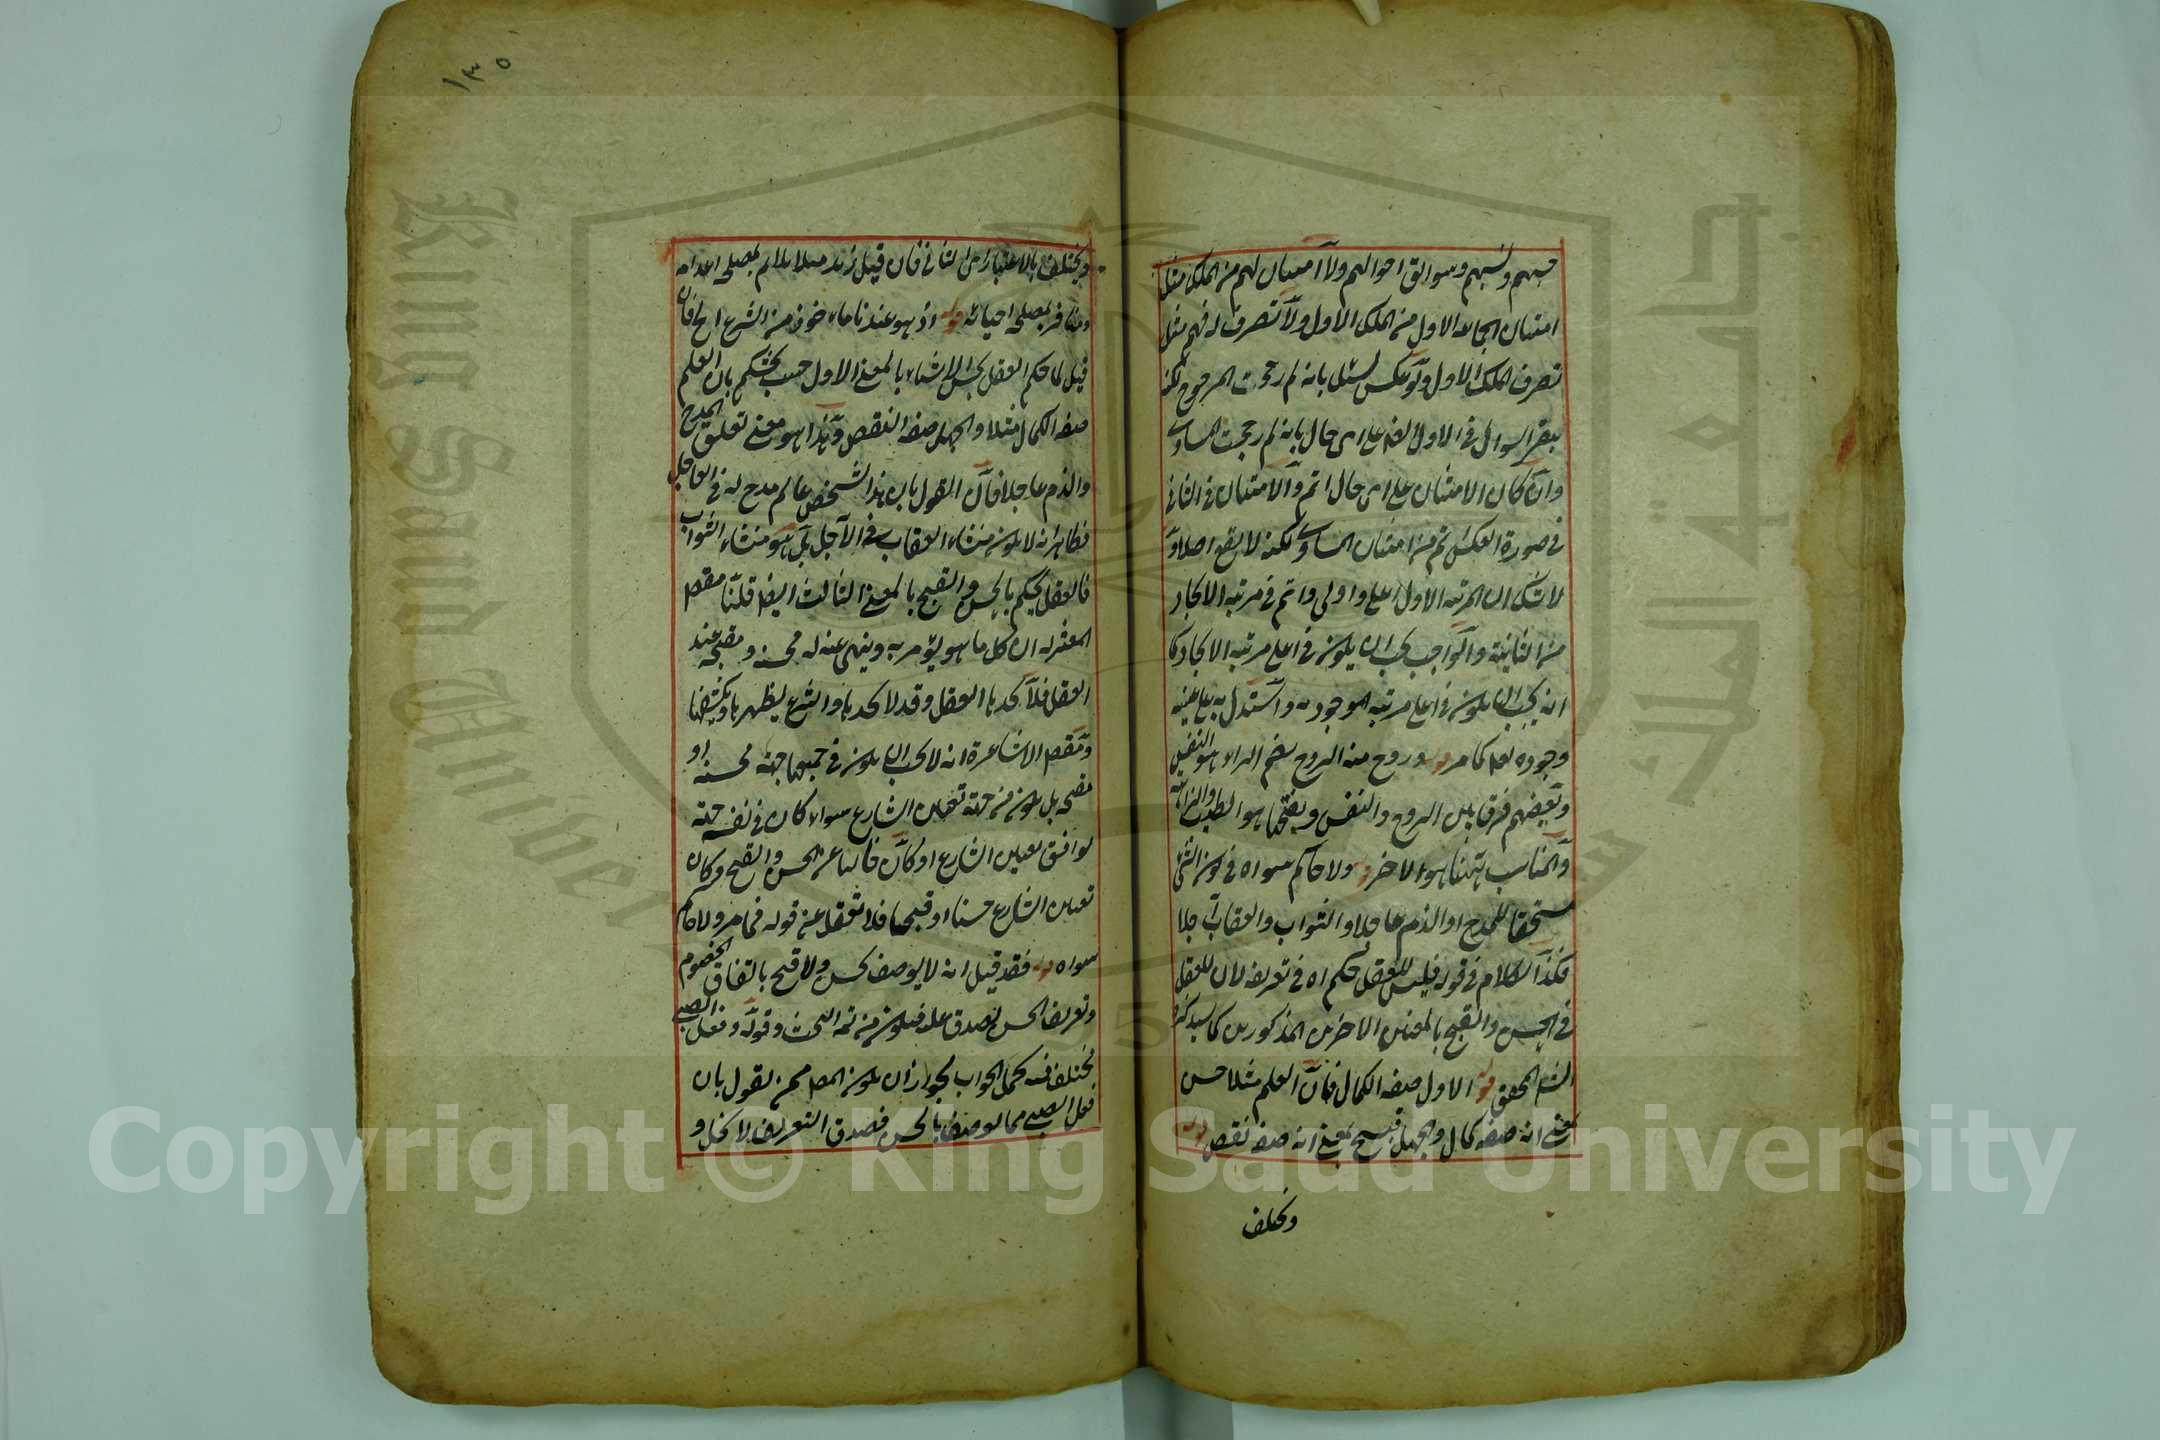 حسبهم ونسبهم وسوابق احوالهم ولا امتنان لهم من الملك مثل
امتنان الجماعة الاول من الملك الاول ولا تصرف له فيهم مثل
تصرف الملك الاول ولو عكس لسئل بانه لم رجحت المرجوح لكنه
السوال في الاول ايضا على اى حال بانه لم رجحت المساوى
وان كان الامتنان على اى حال اتم والامتنان في الثانى
في صورة العكس تم من امتنان المساوى لكنه لا يقع اصلا و
لا شك ان المرتبة الاول اعلى واولى واتم في مرتبة الايجاد
من الثانية والواجب يجب ان يكون في اعلى مرتبة الايجاد كما
انه يجب ان يكون في اعلى مرتبة الموجودية واستدل به على عينية
وجوده له كما مر قوله وروح منه الروح بضم الراء هو النفس
وبعضهم فرق بين الروح والنفس وبفتحها هو الطيب والراحة
والمناسب ههنا هو الاخر قوله ولا حاكم سواه في كون الشئ
مستحقا للمدح او الذم عاجلا والثواب والعقاب آجلا
فكذا الكلام في قوله فليس للعقل حكم اه في تعريفه لان للعقل
في الحسن والقبح بالمعنيين الاخرين المذكورين كما سيذكره
الشارح المحقق قوله الاول صفة الكمال فان العلم مثلا حسن
بمعنى انه صفة كمال والجهل قبيح بمعنى انه صفة نقص قوله
ويختلف
١٣٥
ويختلف بالاعتبار اى الثانى فان قيل زيد مثلا ملايم لمصلحة اعدائه
ومنافر لمصلحة احبائه قوله اذ هو عندنا ماخوذ من الشرع الخ فان
قيل لما حكم العقل بحسن الاشياء بالمعنى الاول حسب يحكم بان العلم
صفة الكمال مثلا والجهل صفة النقص وهذا هو معنى تعلق المدح
والذم عاجلا فان القول بان هذا الشخص عالم مدح له في العاجل
فظاهر انه لا يكون منشاء العقاب في الآجل بل هو منشاء الثواب
فالعقل يحكم بالحسن والقبح بالمعنى الثالث ايضا قلنا مقصد
المعتزلة ان كل ما هو يؤمر به وينهى عنه له محسنة ومقبحة عند
العقل فلا يجدها العقل وقد لا يجدها والشرع يظهرها ويكشفها
ومقصد الاشاعرة انه لا يجب ان يكون في جميعها جهة محسنة او
مقبحة بل يكون من جهة تعيين الشارع سواء كان في نفسه جهة
توافق تعيين الشارع او كان خاليا عن الحسن والقبح وكان
تعيين الشارع حسنا او قبيحا فلا تغفل عن قوله فيما مر ولا حاكم
سواه قوله فقد قيل انه لا يوصف بحسن ولا قبح بالتفاق الخصوم
وتعريف الحسن يصدق عليه فيكون من تمة البحث وقوله وفعل الصبى
مختلف فيه يحتمل الجواب بجواز ان يكون المصم ممن يقول بان
فعل الصبى مما يوصف بالحسن فصدق التعريف لا يخل و